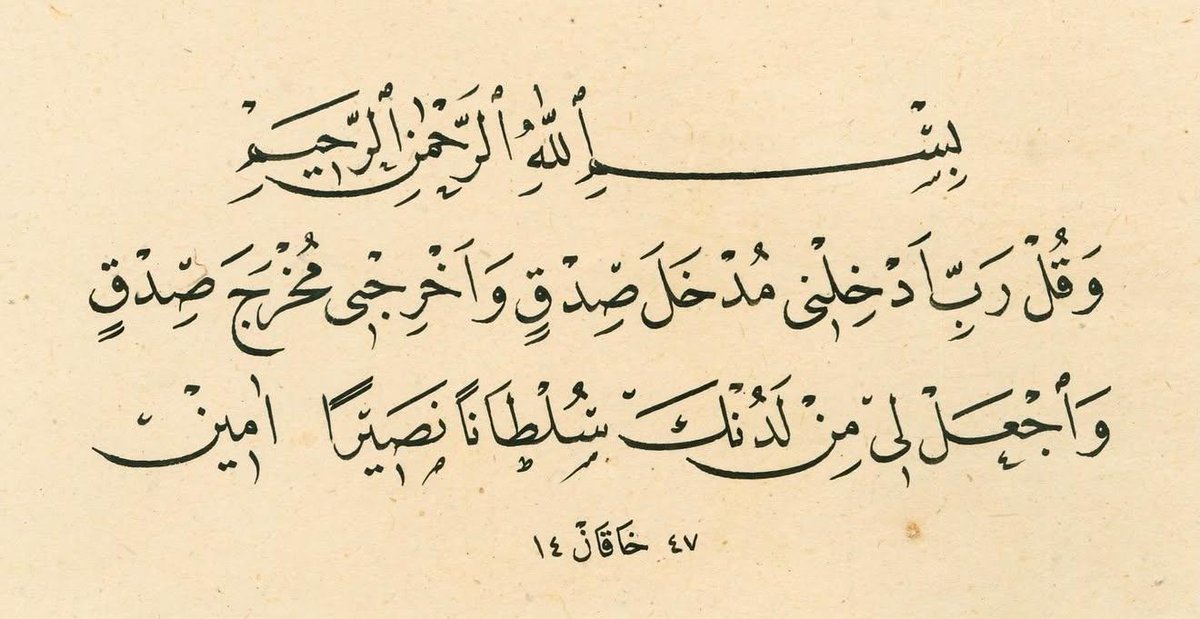 بِسْمِ ٱللّٰهِ ٱلرَّحْمٰنِ ٱلرَّحِيمِ
وَقُلْ رَبِّ اَدْخِلْنٖى مُدْخَلَ صِدْقٍ وَاَخْرِجْنٖى مُخْرَجَ صِدْقٍ
وَٱجْعَلْ لٖى مِنْ لَدُنْكَ سُلْطَانًا نَصٖيرًا اٰمٖينْ
٤٧ خَاقَانْ ١٤